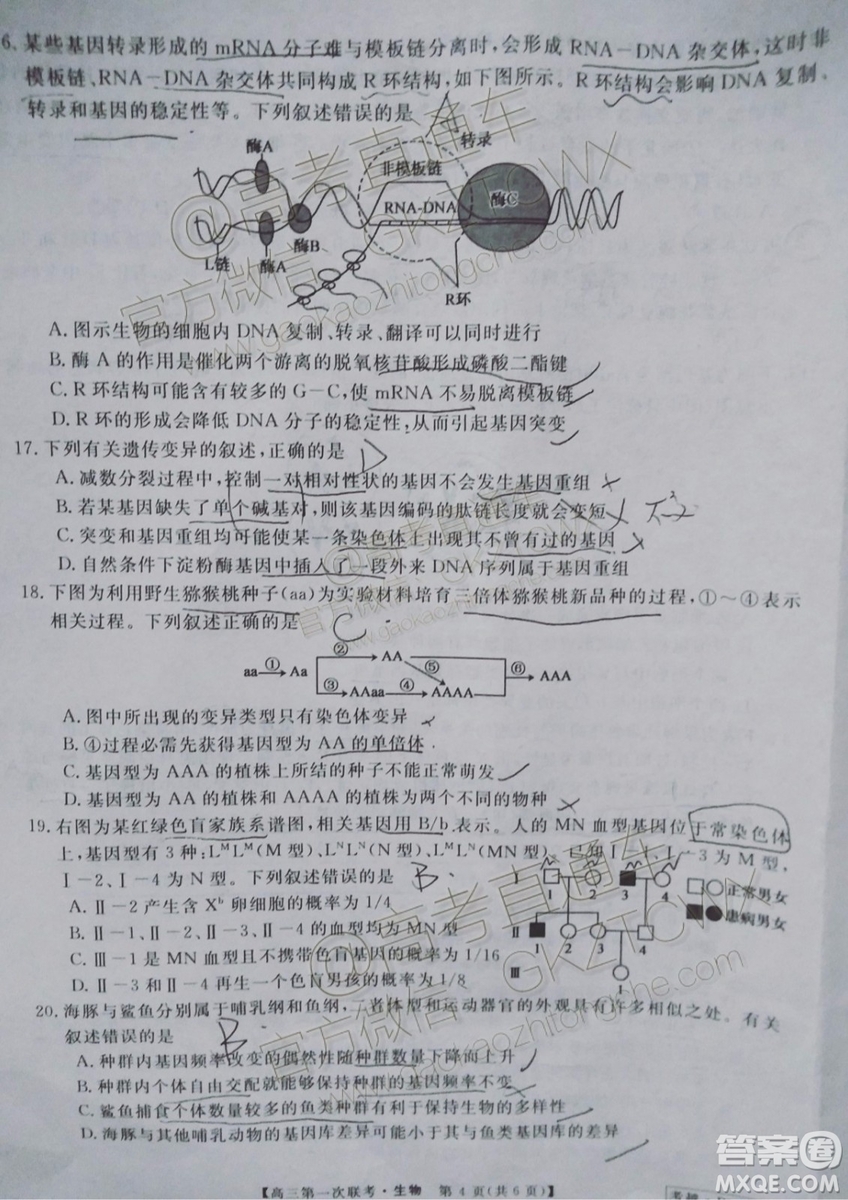 6. 某些基因转录形成的 mRNA 分子难与模板链分离时,会形成 RNA-DNA 杂交体,这时非
模板链、RNA-DNA 杂交体共同构成 R 环结构,如下图所示。R 环结构会影响 DNA 复制、
转录和基因的稳定性等。下列叙述错误的是
酶A
转录
非模板链
酶C
RNA-DNA
酶B
L链
酶A
R环
A. 图示生物的细胞内 DNA 复制、转录、翻译可以同时进行
B. 酶 A 的作用是催化两个游离的脱氧核苷酸形成磷酸二酯键
C. R 环结构可能含有较多的 G-C,使 mRNA 不易脱离模板链
D. R 环的形成会降低 DNA 分子的稳定性,从而引起基因突变
17. 下列有关遗传变异的叙述,正确的是 D
A. 减数分裂过程中,控制一对相对性状的基因不会发生基因重组
B. 若某基因缺失了单个碱基对,则该基因编码的肽链长度就会变短
C. 突变和基因重组均可能使某一条染色体上出现其不曾有过的基因
D. 自然条件下淀粉酶基因中插入了一段外来 DNA 序列属于基因重组
18. 下图为利用野生猕猴桃种子(aa)为实验材料培育三倍体猕猴桃新品种的过程,①~④表示
相关过程。下列叙述正确的是 C
② AA ⑤ ⑥
aa ① Aa AAA
③ AAaa ④ AAAA
A. 图中所出现的变异类型只有染色体变异
B. ④过程必需先获得基因型为 AA 的单倍体
C. 基因型为 AAA 的植株上所结的种子不能正常萌发
D. 基因型为 AA 的植株和 AAAA 的植株为两个不同的物种
19. 右图为某红绿色盲家族系谱图,相关基因用 B/b 表示。人的 MN 血型基因位于常染色体
上,基因型有 3 种:LᴹLᴹ(M 型)、LᴺLᴺ(N 型)、LᴹLᴺ(MN 型)。已知Ⅰ-1、Ⅰ-3 为 M 型,
Ⅰ-2、Ⅰ-4 为 N 型。下列叙述错误的是 B
A. Ⅱ-2 产生含 Xᵇ 卵细胞的概率为 1/4
B. Ⅱ-1、Ⅱ-3、Ⅱ-4 的血型均为 MN 型
C. Ⅲ-1 为 MN 血型且不携带色盲基因的概率为 1/16
D. Ⅱ-3 和Ⅱ-4 再生一个色盲男孩的概率为 1/8
Ⅰ 1 2 3 4
Ⅱ 1 2 3 4
Ⅲ 1
正常男女
患病男女
20. 海豚与鲨鱼分别属于哺乳纲和鱼纲,二者体型和运动器官的外观具有许多相似之处。有关
叙述错误的是 B
A. 种群内基因频率改变的偶然性随种群数量下降而上升
B. 种群内个体自由交配就能够保持种群的基因频率不变
C. 鲨鱼捕食个体数量较多的鱼类种群有利于保持生物的多样性
D. 海豚与其他哺乳动物的基因库差异可能小于其与鱼类基因库的差异
【高三第一次联考·生物 第 4 页(共 6 页)】
@高考直通车
官方微信:GKZTCWX
www.gaokaozhitongche.com
@高考直通车
官方微信:GKZTCWX
www.gaokaozhitongche.com
答案圈